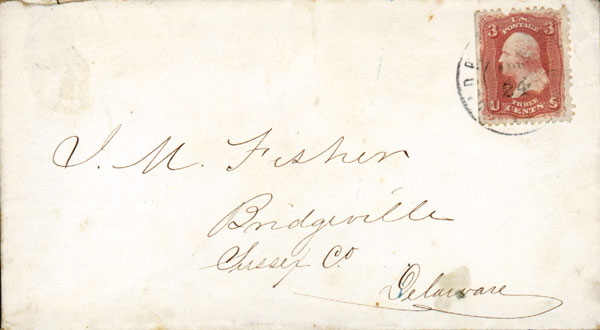 3 U.S. 3
POSTAGE
24
THREE
U CENTS S
J. M. Fisher
Bridgeville
Sussex Co
Delaware